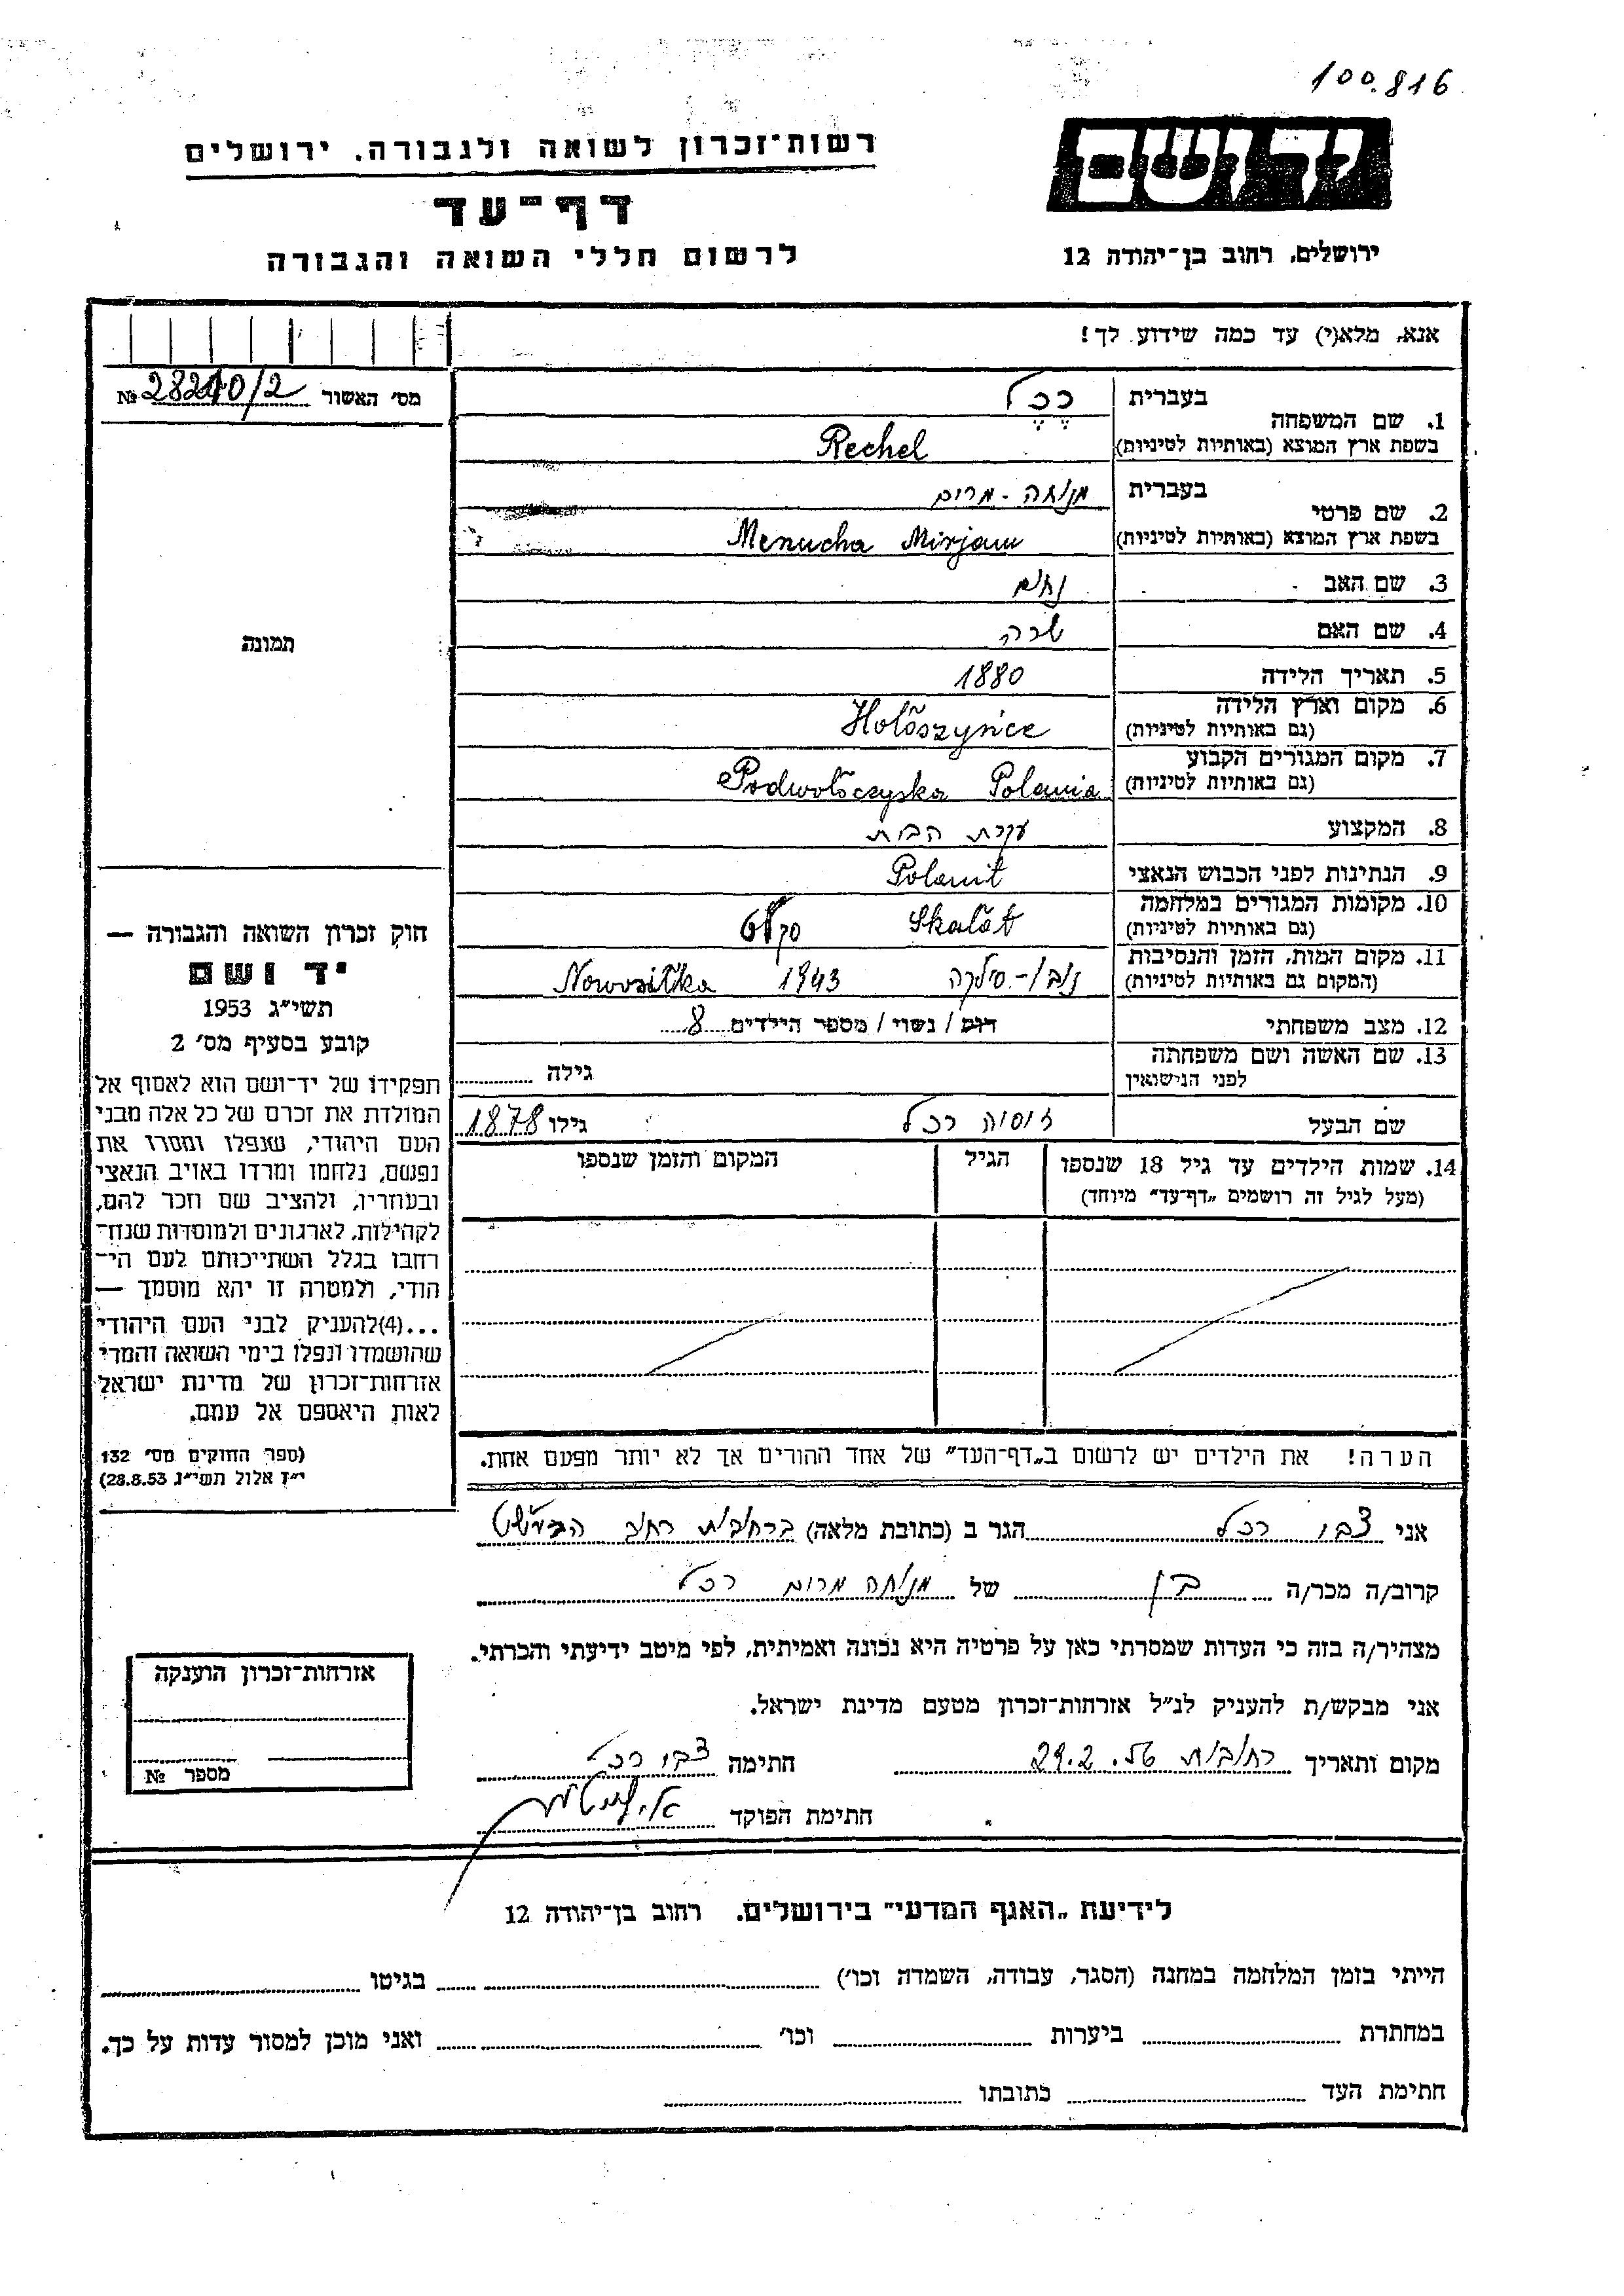 100.816
יד ושם
ירושלים, רחוב בן־יהודה 12
רשות־זכרון לשואה ולגבורה, ירושלים
דף־עד
לרשום חללי השואה והגבורה
אנא, מלא(י) עד כמה שידוע לך!
מס׳ האשור №
1. שם המשפחה בעברית רֶכֶל
בשפת ארץ המוצא (באותיות לטיניות) Rechel
2. שם פרטי בעברית מנוחה - מרים
בשפת ארץ המוצא (באותיות לטיניות) Menucha Mirjam
3. שם האב נחום
4. שם האם שרה
5. תאריך הלידה 1880
6. מקום וארץ הלידה
(גם באותיות לטיניות) Hołoszyńce
7. מקום המגורים הקבוע
(גם באותיות לטיניות) Podwołoczyska Polania
8. המקצוע עקרת הבית
9. הנתינות לפני הכבוש הנאצי Polanit
10. מקומות המגורים במלחמה
(גם באותיות לטיניות) Skałat
11. מקום המות, הזמן והנסיבות
(המקום גם באותיות לטיניות) 1943 Nowosiłka
12. מצב משפחתי רווק / נשוי / מספר הילדים 8
13. שם האשה ושם משפחתה
לפני הנישואין גילה
שם הבעל רכל גילו 1878
14. שמות הילדים עד גיל 18 שנספו הגיל המקום והזמן שנספו
(מעל לגיל זה רושמים „דף־עד״ מיוחד)
הערה! את הילדים יש לרשום ב„דף־העד״ של אחד ההורים אך לא יותר מפעם אחת.
תמונה
חוק זכרון השואה והגבורה —
יד ושם
תשי״ג 1953
קובע בסעיף מס׳ 2
תפקידו של יד־ושם הוא לאסוף אל
המולדת את זכרם של כל אלה מבני
העם היהודי, שנפלו ומסרו את
נפשם, נלחמו ומרדו באויב הנאצי
ובעוזריו, ולהציב שם וזכר להם,
לקהילות, לארגונים ולמוסדות שנח־
רבו בגלל השתייכותם לעם הי־
הודי, ולמטרה זו יהא מוסמך —
...(4)להעניק לבני העם היהודי
שהושמדו ונפלו בימי השואה והמרי
אזרחות־זכרון של מדינת ישראל
לאות היאספם אל עמם.
(ספר החוקים מס׳ 132
י״ז אלול תשי״ג 28.8.53)
אני צבי רכל הגר ב (כתובת מלאה) ברחובות רחוב
קרוב/ה מכר/ה בן של מנוחה מרים רכל
מצהיר/ה בזה כי העדות שמסרתי כאן על פרטיה היא נכונה ואמיתית, לפי מיטב ידיעתי והכרתי.
אני מבקש/ת להעניק לנ״ל אזרחות־זכרון מטעם מדינת ישראל.
מקום ותאריך רחובות 29.2.56 חתימה צבי רכל
חתימת הפוקד
אזרחות־זכרון הוענקה
מספר №
לידיעת „האגף המדעי״ בירושלים, רחוב בן־יהודה 12
הייתי בזמן המלחמה במחנה (הסגר, עבודה, השמדה וכו׳) בגיטו
במחתרת ביערות וכו׳ ואני מוכן למסור עדות על כך.
חתימת העד כתובתו